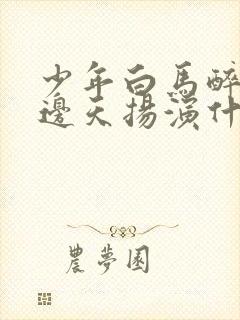 少年白馬醉
邊天揚演什
農夢園